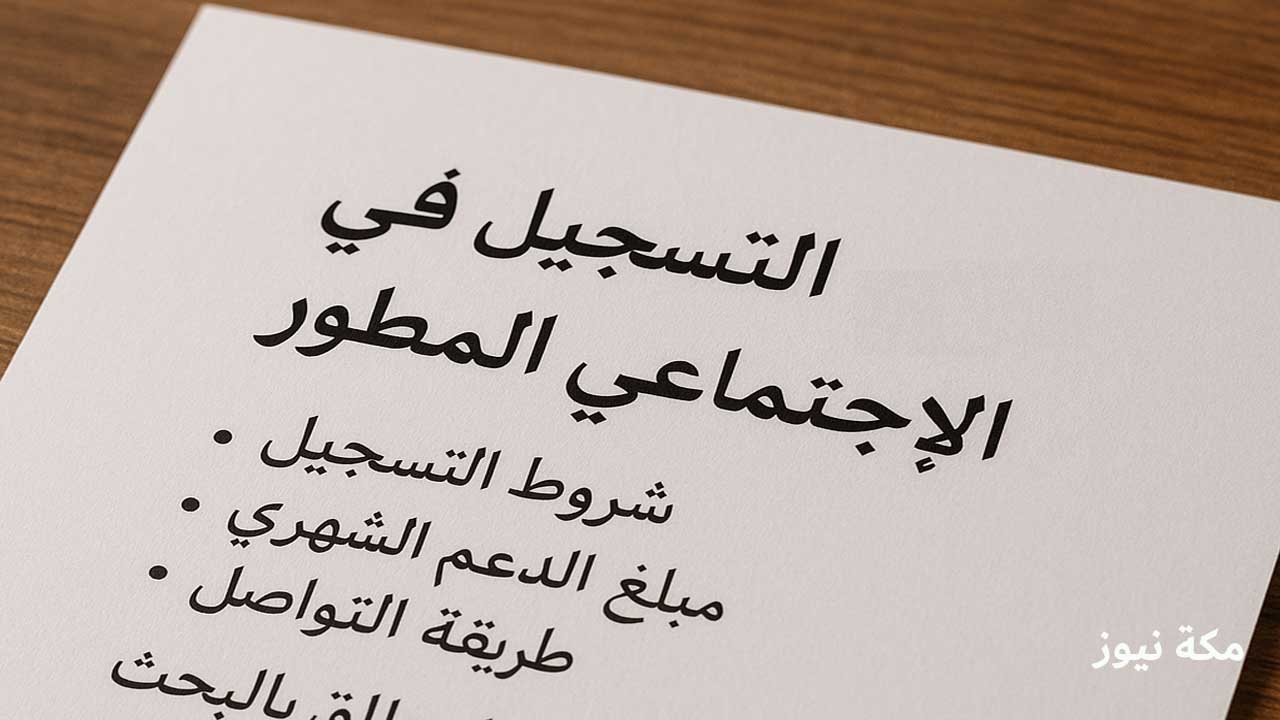 التسجيل في
الإجتماعي المطور
شروط التسجيل •
مبلغ الدعم الشهري •
طريقة التواصل •
بالبحث
مكة نيوز